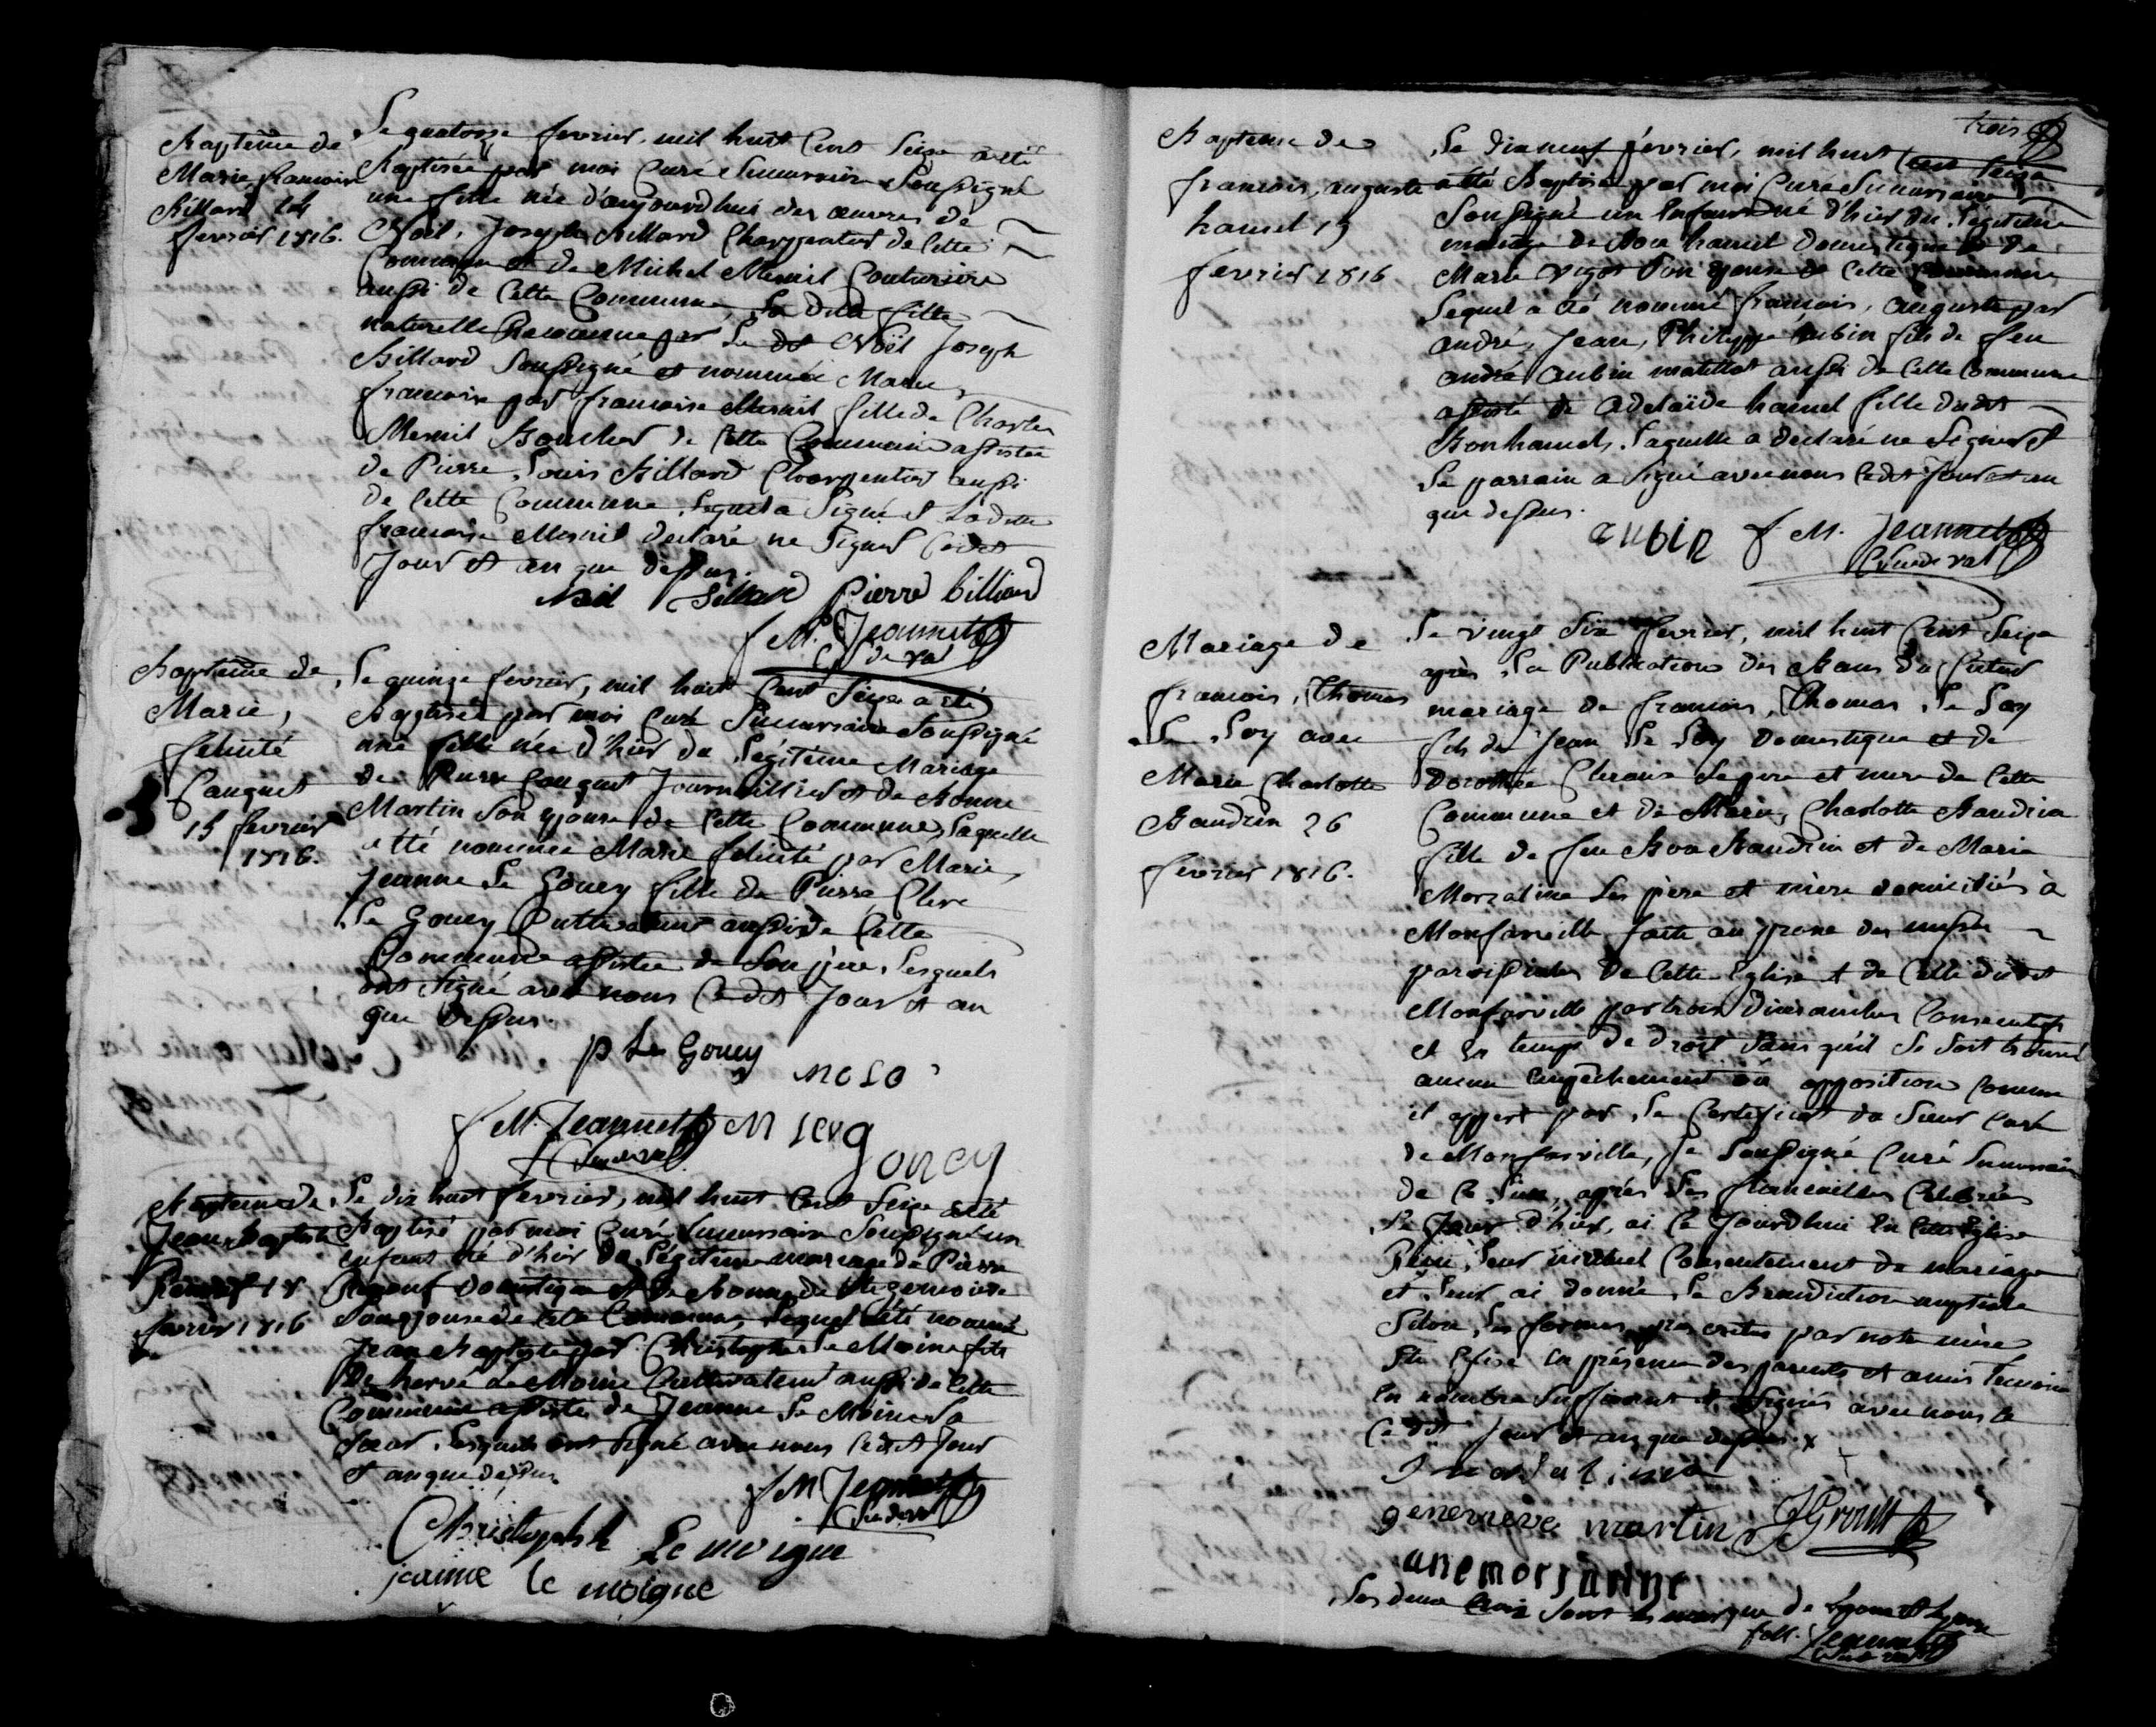 Bapteme de
Marie, francoise
Billard 14
fevrier 1816.
Le quatorze fevrier, mil huit Cent Seize a été
Baptisée par moi Curé Succursaire Soussigné
une fille née d'aujourdhui des œuvres de
Noël, Joseph Billard Charpentier de Cette
Commune et de Michel Mesnil Couturiere
aussi de Cette Commune, La dite fille
naturelle Reconnue par Le dit Noël Joseph
Billard Soussigné et nommée Marie,
francoise par francoise Mesnil fille de Charles
Mesnil Boucher de Cette Commune assistée
de Pierre, Louis Billard Charpentier aussi
de Cette Commune, Lequel a Signé et Ladite
francoise Mesnil declaré ne Signer Cedit
Jour et an que dessus.
Noël Billard Pierre billiard
f M. Jeannet
C de val
Bapteme de
Marie,
felicité
Cauquet
15 fevrier
1816.
Le quinze fevrier, mil huit Cent Seize a été
Baptisée par moi Curé Succursaire Soussigné
une fille née d'hier du Légitime Mariage
de Pierre Cauquet Journaillier et de Bonne
Martin Son épouse de Cette Commune, Laquelle
a été nommée Marie felicité par Marie,
Jeanne Le Gouey fille de Pierre,
Le Gouey Cultivateur aussi de Cette
Commune assistée de Son père, Lesquels
ont Signé avec nous Cedit Jour et an
que dessus.
p Le Gouey
f M. Jeannet
gouey
Bapteme de
Jean, Baptiste
Renouf 18
fevrier 1816
Le dix huit fevrier, mil huit Cent Seize a été
Baptisé par moi Curé Succursaire Soussigné un
enfant né d'hier du Légitime mariage de Pierre
Renouf Domestique et de Bonne
Son épouse de Cette Commune, Lequel a été nommé
Jean Baptiste par Christophe Le Moine fils
de hervé Le Moine Cultivateur aussi de Cette
Commune assisté de Jeanne Le Moine Sa
Sœur, Lesquels ont Signé avec nous Cedit Jour
et an que dessus
f M Jeannet
Christophe Le moigne
jeanne le moigne
trois
Bapteme de
francois, auguste
hamel 19
fevrier 1816
Le dix neuf fevrier, mil huit Cent Seize
a été Baptisé par moi Curé Succursaire
Soussigné un Enfant né d'hier du Légitime
mariage de Bon hamel domestique et de
Marie Vigot Son épouse de Cette Commune
Lequel a été nommé francois, auguste par
andré, Jean, Philippe aubin fils de feu
andré aubin matellot aussi de Cette Commune
assisté de Adelaïde hamel fille dudit
Bon hamel, Laquelle a declaré ne Signer et
Le parrain a Signé avec nous Cedit Jour et an
que dessus.
aubin f M. Jeannet
C de val
Mariage de
francois, Thomas
Le Loy avec
Marie Charlotte
Baudin 26
fevrier 1816.
Le vingt Six fevrier, mil huit Cent Seize
après La Publication des Bans du futur
mariage de francois, Thomas Le Loy
fils de Jean Le Loy Domestique et de
Dorothée Ses pere et mere de Cette
Commune et de Marie, Charlotte Baudin
fille de feu Bon Baudin et de Marie
Morsaline Ses père et mère domiciliés à
Monfarville faite au prone des messes
paroissiales de Cette Eglise et de Celle dudit
Monfarville par trois dimanches Consecutifs
et en temps de droit Sans qu'il Se Soit trouvé
aucun Empêchement ou opposition Comme
il appert par Le Certificat du Sieur Curé
de Monfarville, Je Soussigné Curé Succursaire
de Ce Lieu, après Les fiancailles Celebrées
Le Jour d'hier, ai Ce Jourdhui En Cette Eglise
Reçu Leur mutuel Consentement de mariage
et Leur ai donné La Benediction nuptiale
Selon Les formes prescrites par notre mère
Ste Eglise En présence des parents et amis temoins
En nombre Suffisant et Signés avec nous Ce
Cedit Jour et an que dessus. x
genevieve martin
anemorsaline
Les deux Croix Sont La marque de
f M. Jeannet